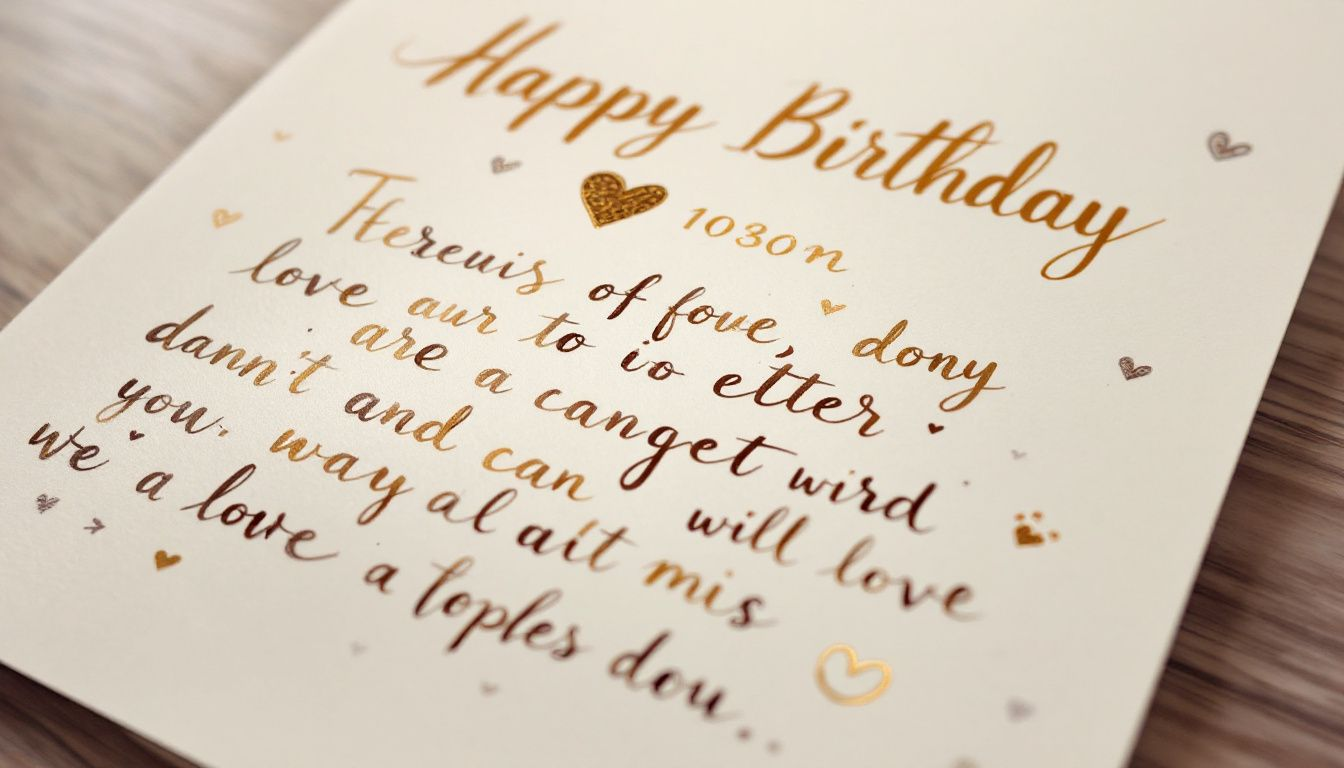 Happy Birthday
1030n
Hereuis of foue, dony
love aur to io etter
dann't are a canget wird
you. and can will love
we a way al ait mis
a love a toples dou..